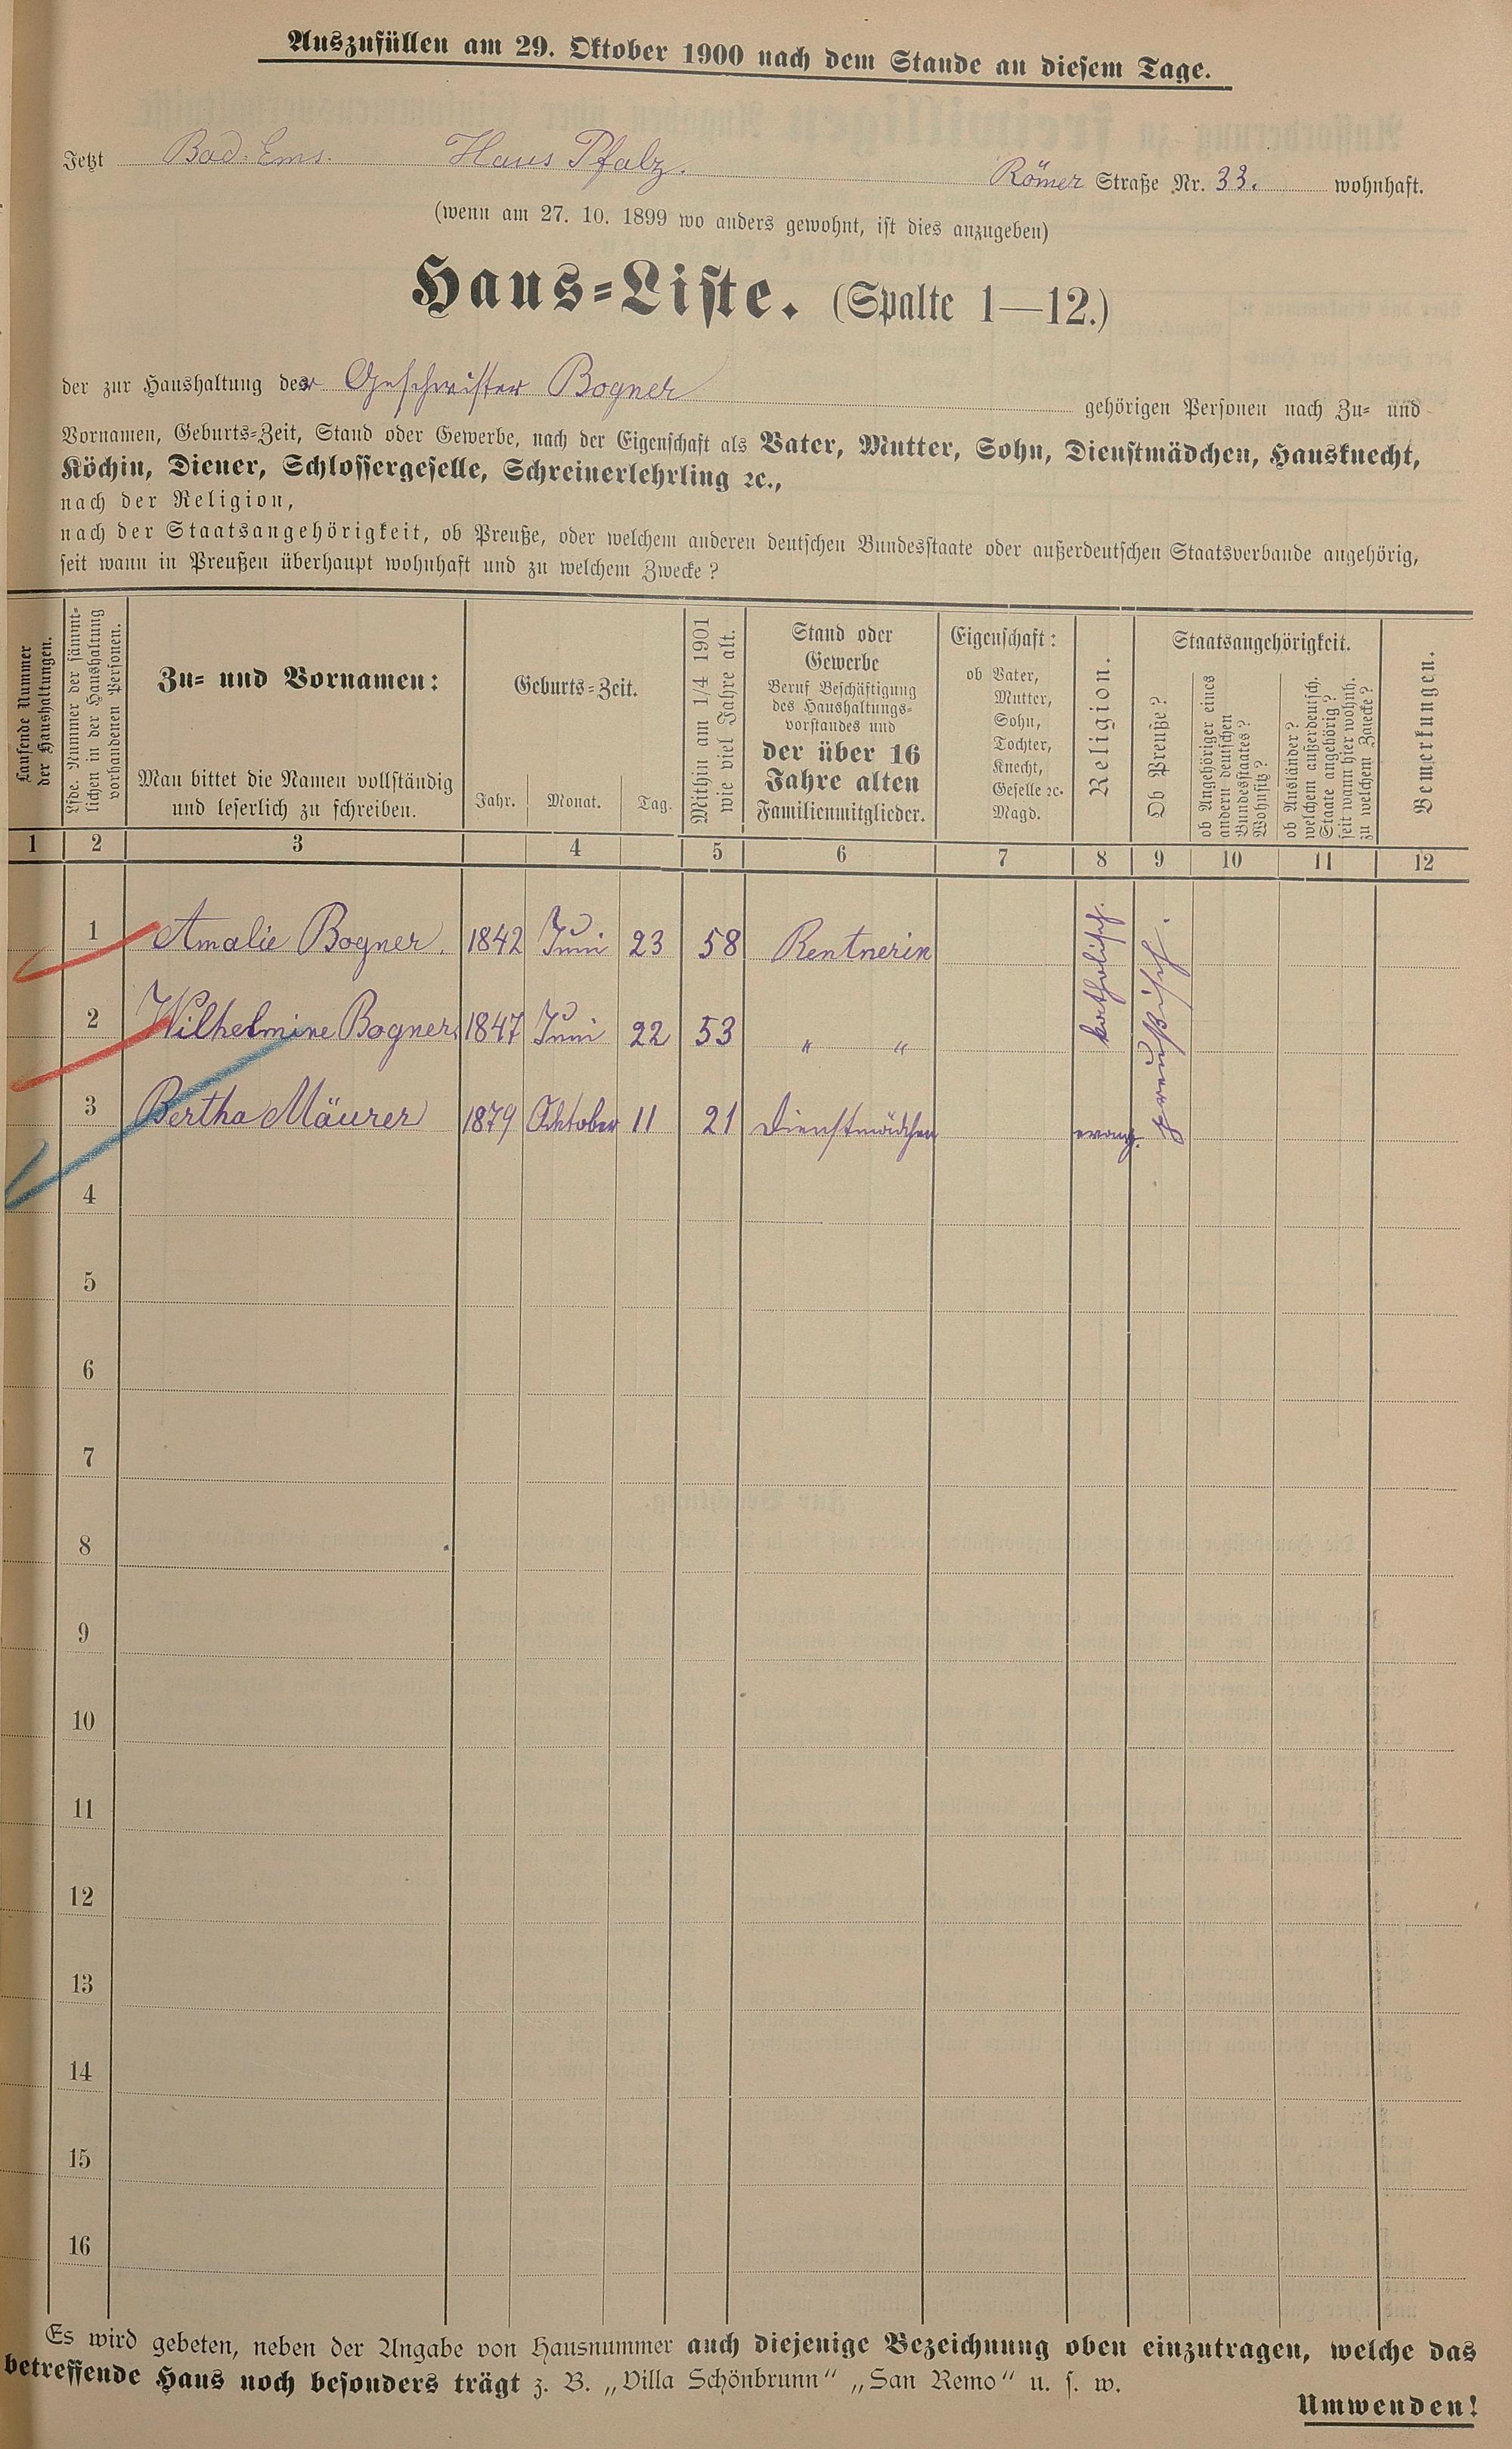 Auszufüllen am 29. Oktober 1900 nach dem Stande an diesem Tage.
Jetzt Bad-Ems. Haus Pfalz. Römer Straße Nr. 33. wohnhaft.
(wenn am 27. 10. 1899 wo anders gewohnt, ist dies anzugeben)
Haus=Liste. (Spalte 1—12.)
der zur Haushaltung der Geschwister Bogner gehörigen Personen nach Zu= und
Vornamen, Geburts=Zeit, Stand oder Gewerbe, nach der Eigenschaft als Vater, Mutter, Sohn, Dienstmädchen, Hausknecht,
Köchin, Diener, Schlossergeselle, Schreinerlehrling ꝛc.,
nach der Religion,
nach der Staatsangehörigkeit, ob Preuße, oder welchem anderen deutschen Bundesstaate oder außerdeutschen Staatsverbande angehörig,
seit wann in Preußen überhaupt wohnhaft und zu welchem Zwecke?
Laufende Nummer
der Haushaltungen.
Lfde. Nummer der sämmt-
lichen in der Haushaltung
vorhandenen Personen.
Zu= und Vornamen:
Man bittet die Namen vollständig
und leserlich zu schreiben.
Geburts=Zeit.
Jahr. Monat. Tag.
Mithin am 1/4 1901
wie viel Jahre alt.
Stand oder
Gewerbe
Beruf Beschäftigung
des Haushaltungs=
vorstandes und
der über 16
Jahre alten
Familienmitglieder.
Eigenschaft:
ob Vater,
Mutter,
Sohn,
Tochter,
Knecht,
Geselle ꝛc.
Magd.
Religion.
Staatsangehörigkeit.
Ob Preuße?
ob Angehöriger eines
andern deutschen
Bundesstaates?
Wohnsitz?
ob Ausländer?
welchem außerdeutsch.
Staate angehörig?
seit wann hier wohnh.
zu welchem Zwecke?
Bemerkungen.
1 2 3 4 5 6 7 8 9 10 11 12
1 Amalie Bogner. 1842 Juni 23 58 Rentnerin katholisch. preußisch.
2 Wilhelmine Bogner 1847 Juni 22 53 " "
3 Bertha Mäurer 1879 Oktober 11 21 Dienstmädchen evang.
4
5
6
7
8
9
10
11
12
13
14
15
16
Es wird gebeten, neben der Angabe von Hausnummer auch diejenige Bezeichnung oben einzutragen, welche das
betreffende Haus noch besonders trägt z. B. „Villa Schönbrunn“ „San Remo“ u. s. w.
Umwenden!